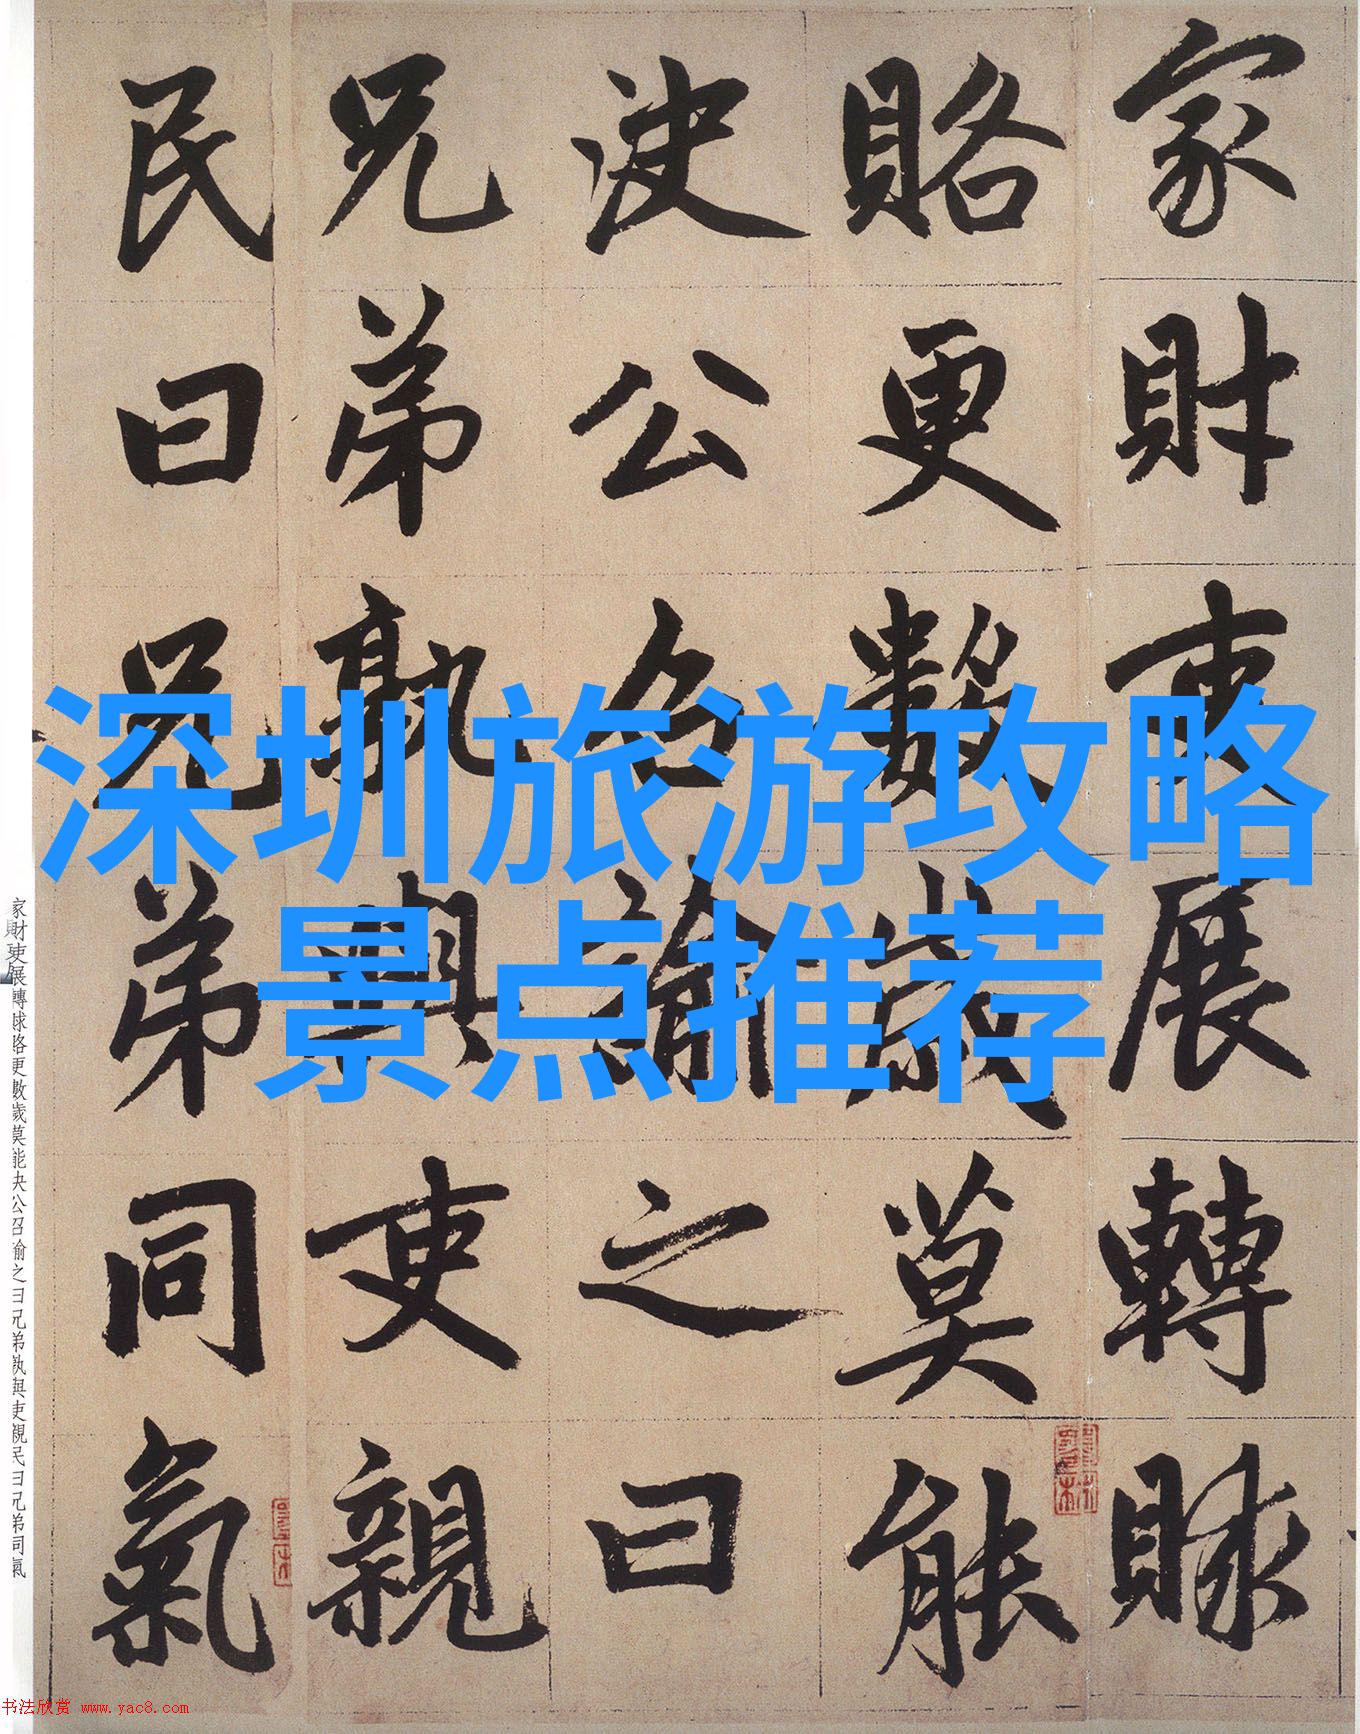 家財吏展轉賕
賂更數歲莫能
決公召諭之曰
兄弟孰與吏親
民曰兄弟同氣
深圳旅游攻略
景点推荐
家財吏展轉賕賂更數歲莫能决公召諭之曰兄弟孰與吏親民曰兄弟同氣
书法欣赏 www.yac8.com